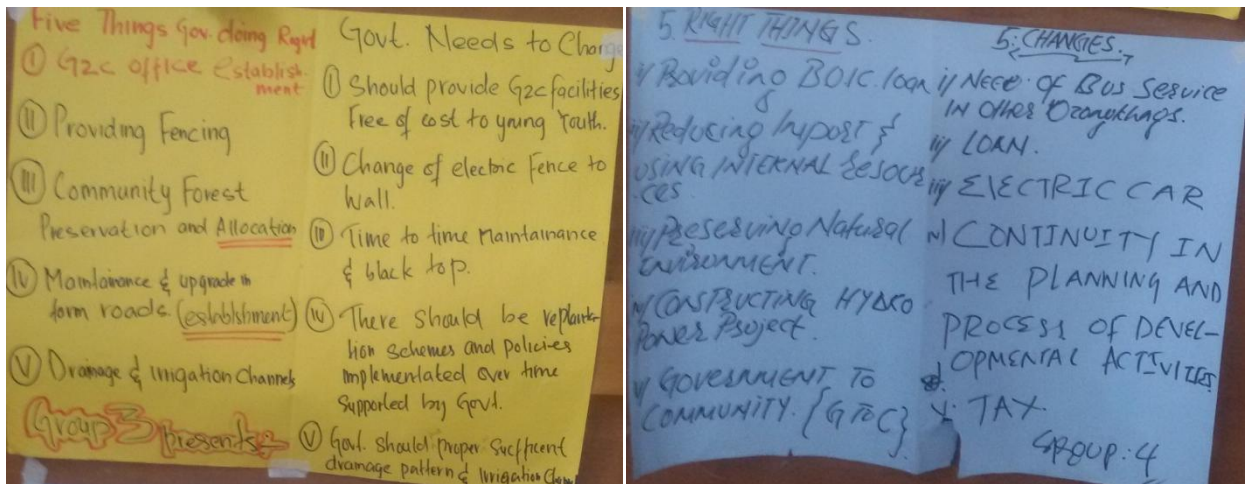 Five Things Gov. doing Right
I G2C office establish-
ment
II Providing Fencing
III Community Forest
Preservation and Allocation
IV Maintainance & upgrade in
farm roads (establishment)
V Drainage & Irrigation Channels
Group 3 presents
Govt. Needs to Change
I Should provide G2c facilities
Free of cost to young Youth.
II Change of electric Fence to
Wall.
III Time to time Maintainance
& black top.
IV There should be replanta-
tion schemes and policies
implementated over time
supported by Govt.
V Govt. should proper sufficent
drainage pattern & Irrigation
5. RIGHT THINGS.
i) Providing BOIC. loan
ii) Reducing Import &
USING INTERNAL RESOUR
CES
iii) Preserving Natural
Environment.
iv) CONSTRUCTING HYDRO
Power Project.
v) GOVERNMENT TO
COMMUNITY. {G TO C}
5. CHANGES.
i) NEED OF BUS SERVICE
IN OTHER Dzongkhags.
ii) LOAN.
iii) ELECTRIC CAR
iv) CONTINUITY IN
THE PLANNING AND
PROCESS OF DEVEL-
OPMENTAL ACTIVITIES
V. TAX.
GROUP: 4